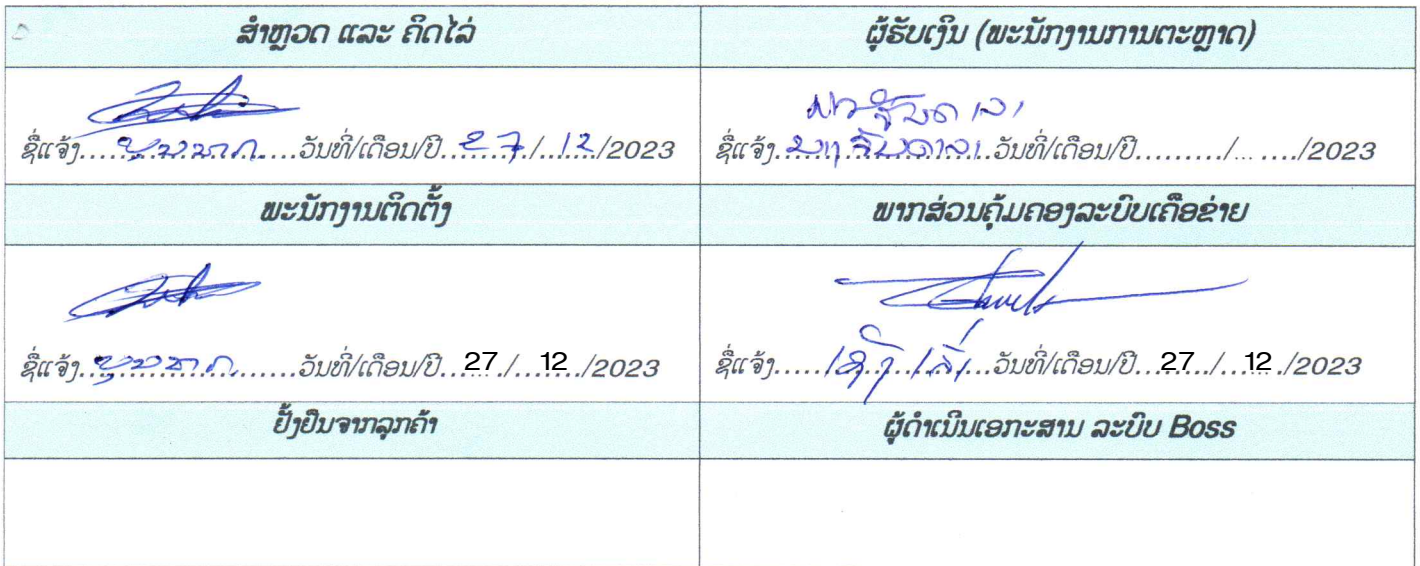 ສຳຫຼວດ ແລະ ຄິດໄລ່
ຜູ້ຮັບເງິນ (ພະນັກງານການຕະຫຼາດ)
ຊື່ແຈ້ງ.....................ວັນທີ່/ເດືອນ/ປີ 27/12/2023
ຊື່ແຈ້ງ.....................ວັນທີ່/ເດືອນ/ປີ........./... ..../2023
ພະນັກງານຕິດຕັ້ງ
ພາກສ່ວນຄຸ້ມຄອງລະບົບເຄືອຂ່າຍ
ຊື່ແຈ້ງ.....................ວັນທີ່/ເດືອນ/ປີ...27../...12../2023
ຊື່ແຈ້ງ.....................ວັນທີ່/ເດືອນ/ປີ...27../...12../2023
ຢັ້ງຢືນຈາກລູກຄ້າ
ຜູ້ດຳເນີນເອກະສານ ລະບົບ Boss